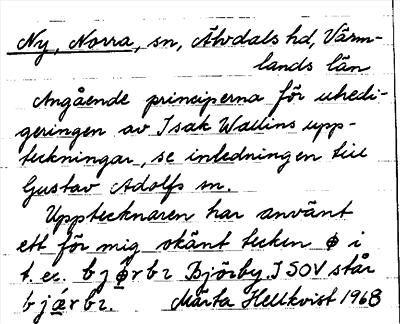 Ny, Norra, sn, Älvdals hd, Värm-
lands län
Angående principerna för utredi-
geringen av Isak Wallins upp-
teckningar, se inledningen till
Gustav Adolfs sn.
Upptecknaren har använt
ett för mig okänt tecken ǿ i
t. ex. bjǿrbɪ Björby. I SOV står
bjǽrbɪ. Märta Hellkvist 1968